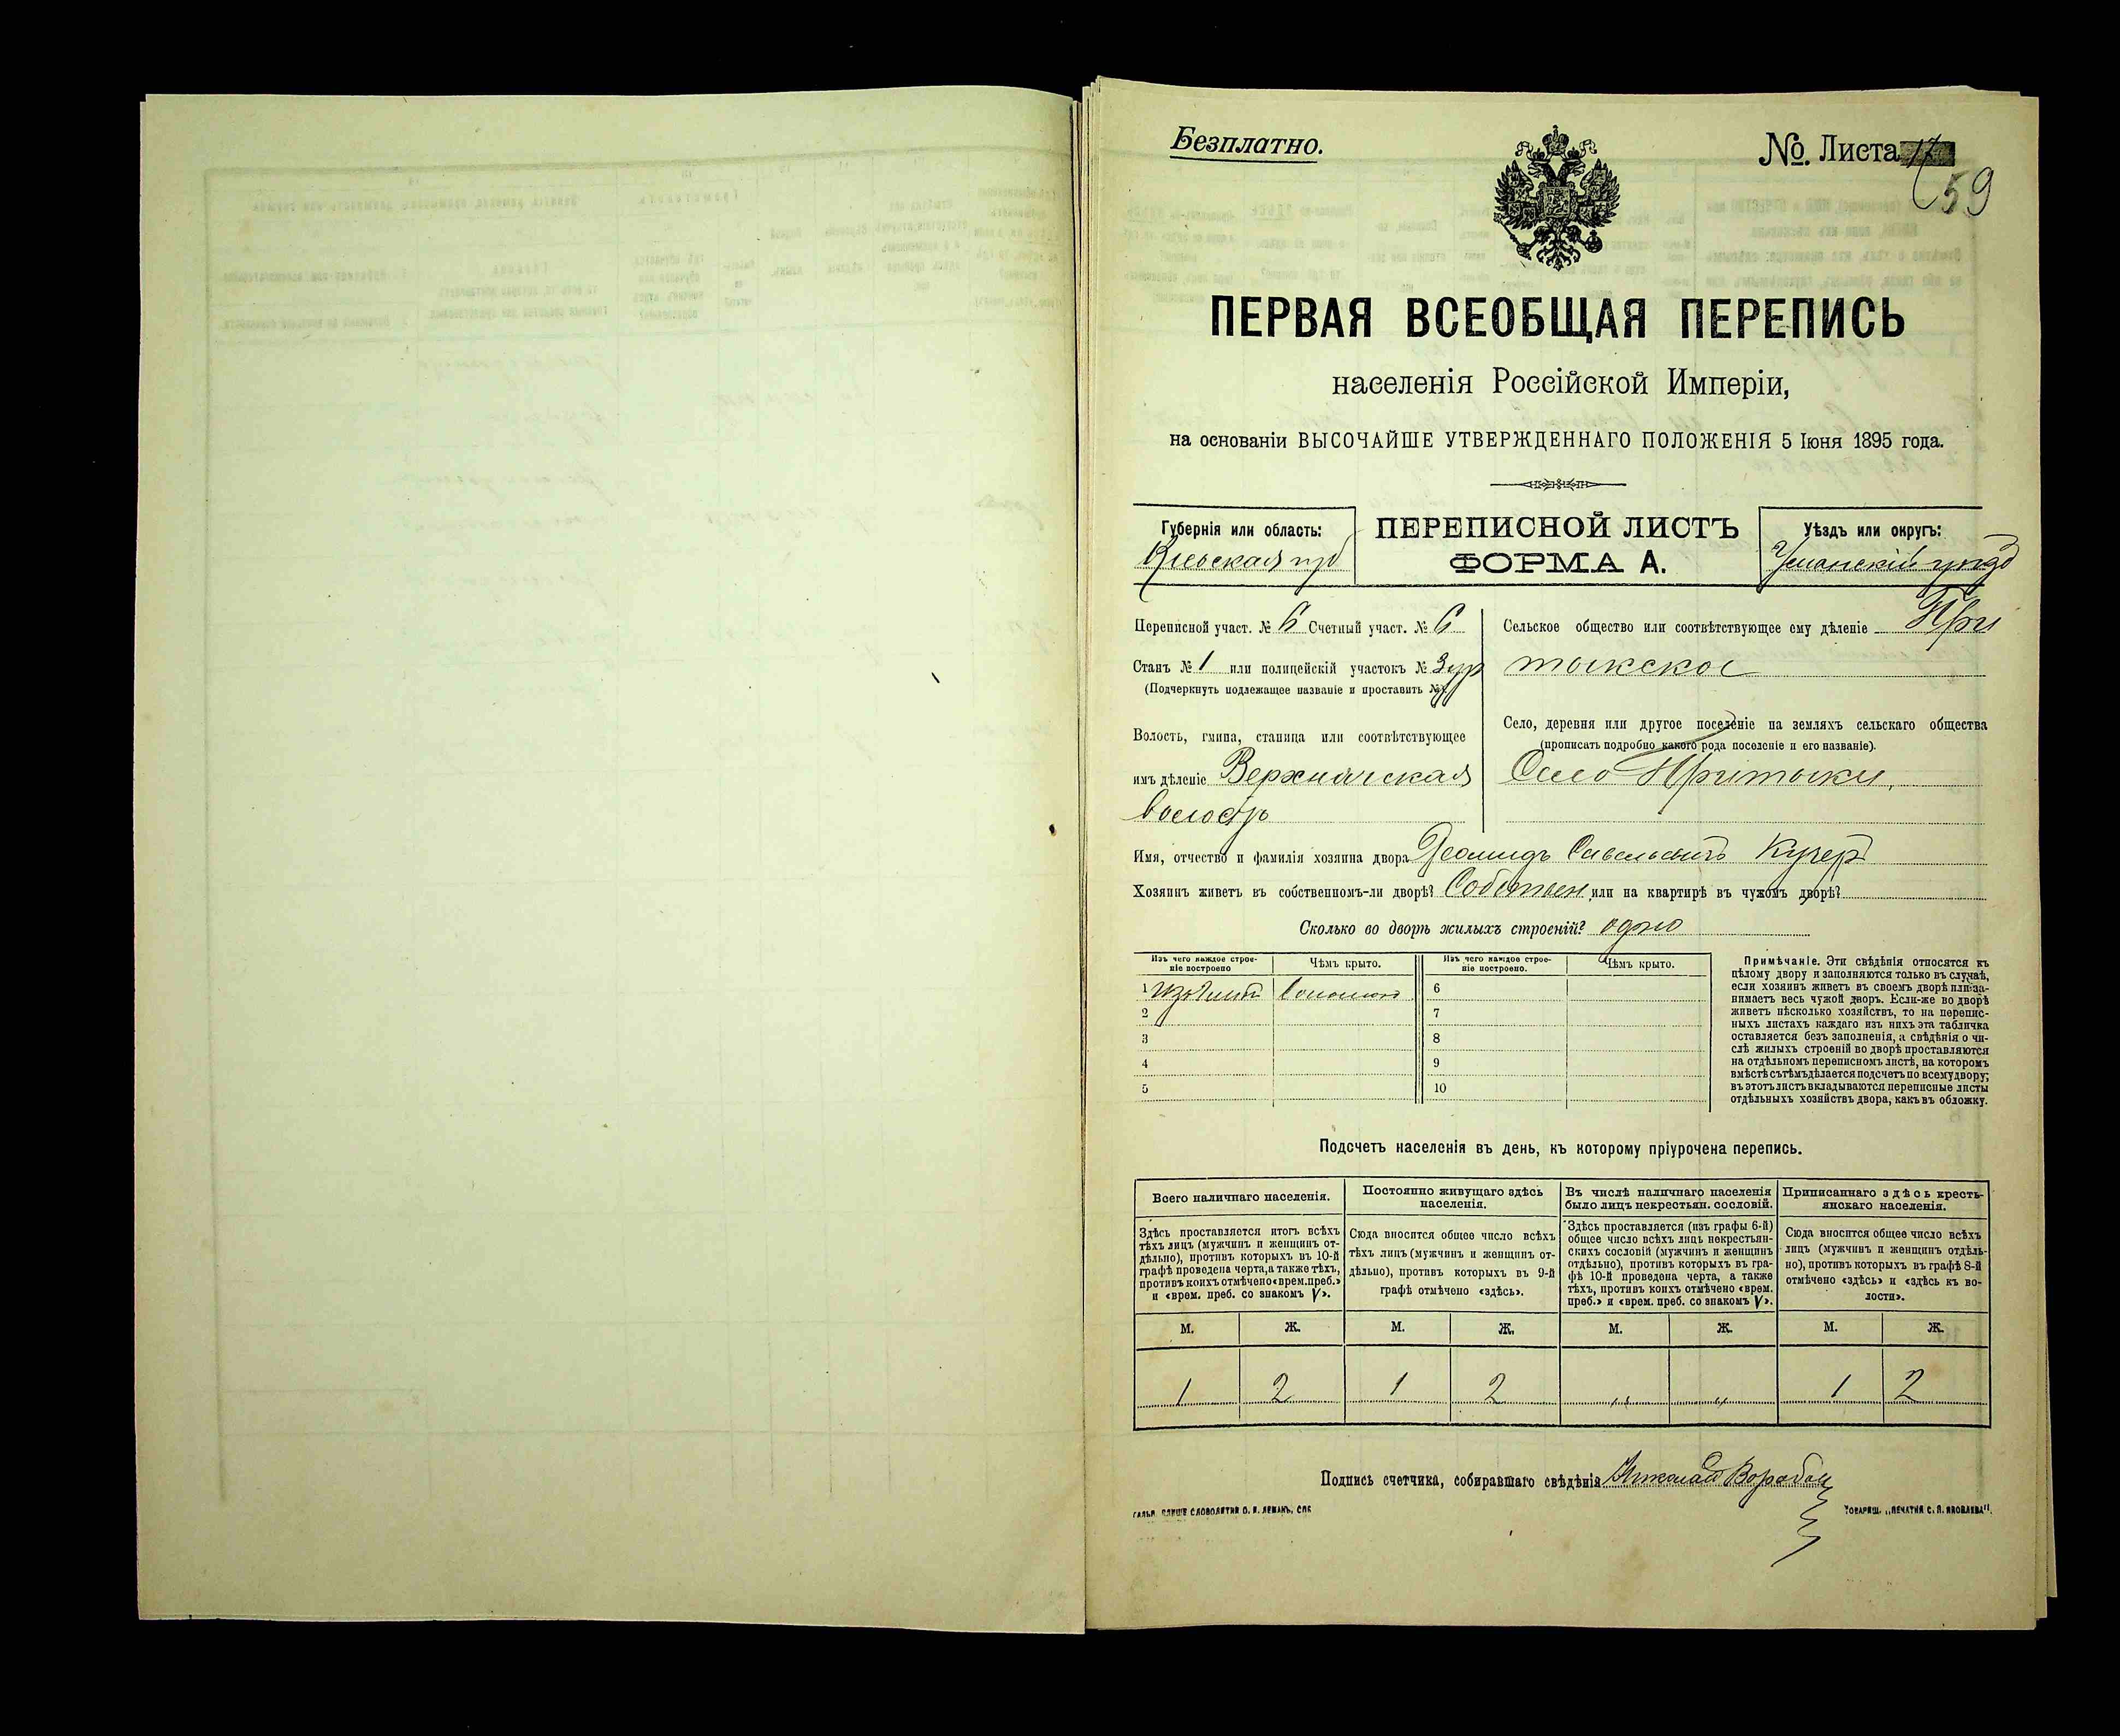 Безплатно.
№. Листа 17
59
ПЕРВАЯ ВСЕОБЩАЯ ПЕРЕПИСЬ
населенія Россійской Имперіи,
на основаніи ВЫСОЧАЙШЕ УТВЕРЖДЕННАГО ПОЛОЖЕНІЯ 5 Іюня 1895 года.
Губернія или область:
Кіевская губ
ПЕРЕПИСНОЙ ЛИСТЪ
ФОРМА А.
Уѣздъ или округъ:
Уманскій уѣздъ
Переписной участ. № 6 Счетный участ. № 6
Станъ № 1 или полицейскій участокъ № 3
(Подчеркнуть подлежащее названіе и проставить №).
Волость, гмина, станица или соотвѣтствующее
имъ дѣленіе Верхнячская
волость
Сельское общество или соотвѣтствующее ему дѣленіе При
тыкское
Село, деревня или другое поселеніе на земляхъ сельскаго общества
(прописать подробно какого рода поселеніе и его названіе).
Село Притыки,
Имя, отчество и фамилія хозяина двора Деомидъ Савельевичъ Кучер
Хозяинъ живетъ въ собственномъ-ли дворѣ? Собствен. или на квартирѣ въ чужомъ дворѣ?
Сколько во дворѣ жилыхъ строеній? одно
Изъ чего каждое строе-
ніе построено
Чѣмъ крыто.
Изъ чего каждое строе-
ніе построено.
Чѣмъ крыто.
1 изъ глины Соломою
2
3
4
5
6
7
8
9
10
Примѣчаніе. Эти свѣдѣнія относятся къ
цѣлому двору и заполняются только въ случаѣ,
если хозяинъ живетъ въ своемъ дворѣ или за-
нимаетъ весь чужой дворъ. Если-же во дворѣ
живетъ нѣсколько хозяйствъ, то на перепис-
ныхъ листахъ каждаго изъ нихъ эта табличка
оставляется безъ заполненія, а свѣдѣнія о чи-
слѣ жилыхъ строеній во дворѣ проставляются
на отдѣльномъ переписномъ листѣ, на которомъ
вмѣстѣ съ тѣмъ дѣлается подсчетъ по всему двору;
въ этотъ листъ вкладываются переписные листы
отдѣльныхъ хозяйствъ двора, какъ въ обложку.
Подсчетъ населенія въ день, къ которому пріурочена перепись.
Всего наличнаго населенія.
Здѣсь проставляется итогъ всѣхъ
тѣхъ лицъ (мужчинъ и женщинъ от-
дѣльно), противъ которыхъ въ 10-й
графѣ проведена черта, а также тѣхъ,
противъ коихъ отмѣчено «врем. преб.»
и «врем. преб. со знакомъ V».
Постоянно живущаго здѣсь
населенія.
Сюда вносится общее число всѣхъ
тѣхъ лицъ (мужчинъ и женщинъ от-
дѣльно), противъ которыхъ въ 9-й
графѣ отмѣчено «здѣсь».
Въ числѣ наличнаго населенія
было лицъ некрестьян. сословій.
Здѣсь проставляется (изъ графы 6-й)
общее число всѣхъ лицъ некрестьян-
скихъ сословій (мужчинъ и женщинъ
отдѣльно), противъ которыхъ въ гра-
фѣ 10-й проведена черта, а также
тѣхъ, противъ коихъ отмѣчено «врем.
преб.» и «врем. преб. со знакомъ V».
Приписаннаго здѣсь кресть-
янскаго населенія.
Сюда вносится общее число всѣхъ
лицъ (мужчинъ и женщинъ отдѣль-
но), противъ которыхъ въ графѣ 8-й
отмѣчено «здѣсь» и «здѣсь къ во-
лости».
М. Ж. М. Ж. М. Ж. М. Ж.
1 2 1 2 „ „ 1 2
Подпись счетчика, собиравшаго свѣдѣнія Николай
ГАЛЬВ. КЛИШЕ СЛОВОЛИТНИ О. И. ЛЕМАНЪ, СПБ
ТОВАРИЩ. „ПЕЧАТНЯ С. П. ЯКОВЛЕВА".